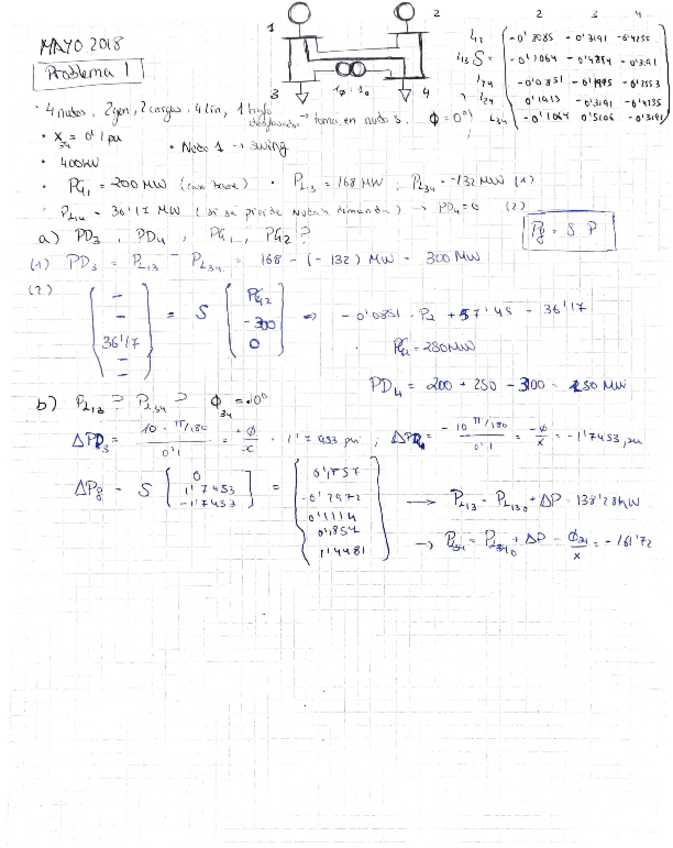 MAYO 2018
Problema 1
1
2
3
4
1φ : 1₀
2 3 4
L12 -0'7085 -0'3191 -0'4255
L13 S = -0'1064 -0'4894 -0'3191
L14 -0'0851 -0'1915 -0'2553
L24 0'1915 -0'3191 -0'4255
L34 -0'1064 0'5106 -0'3191
· 4 nudos, 2 gen, 2 cargas, 4 lin, 1 trafo desfasador → toma en nudo 3. φ = 0º
· X34 = 0'1 pu
· Nodo 1 → swing
· 400kV
· PG1 = 200 MW (caso base) · PL13 = 168 MW ; PL34 = -132 MW (1)
· PL14 = 36'17 MW (si se pierde nudo 4 demanda) → PD4 = 0 (2)
Pf = S · P
a) PD3, PD4, PG1, PG2?
(1) PD3 = PL13 - PL34 = 168 - (-132) MW = 300 MW
(2)
36'17
= S
PG2
-300
0
⇒ -0'0851 · P2 + 57'45 = 36'17
PG2 = 250MW
PD4 = 200 + 250 - 300 = 150 MW
b) PL13? PL34? φ34 = 10º
ΔPD3 = 10 · π/180 / 0'1 = +φ/x = 1'7453 pu ; ΔPD4 = - 10 π/180 / 0'1 = -φ/x = -1'7453 pu
ΔPf = S
0
1'7453
-1'7453
=
0'1857
-0'2972
0'1114
0'1857
1'4481
→ PL13 = PL13₀ + ΔP = 138'28MW
→ PL34 = PL34₀ + ΔP - φ34/x = -161'72